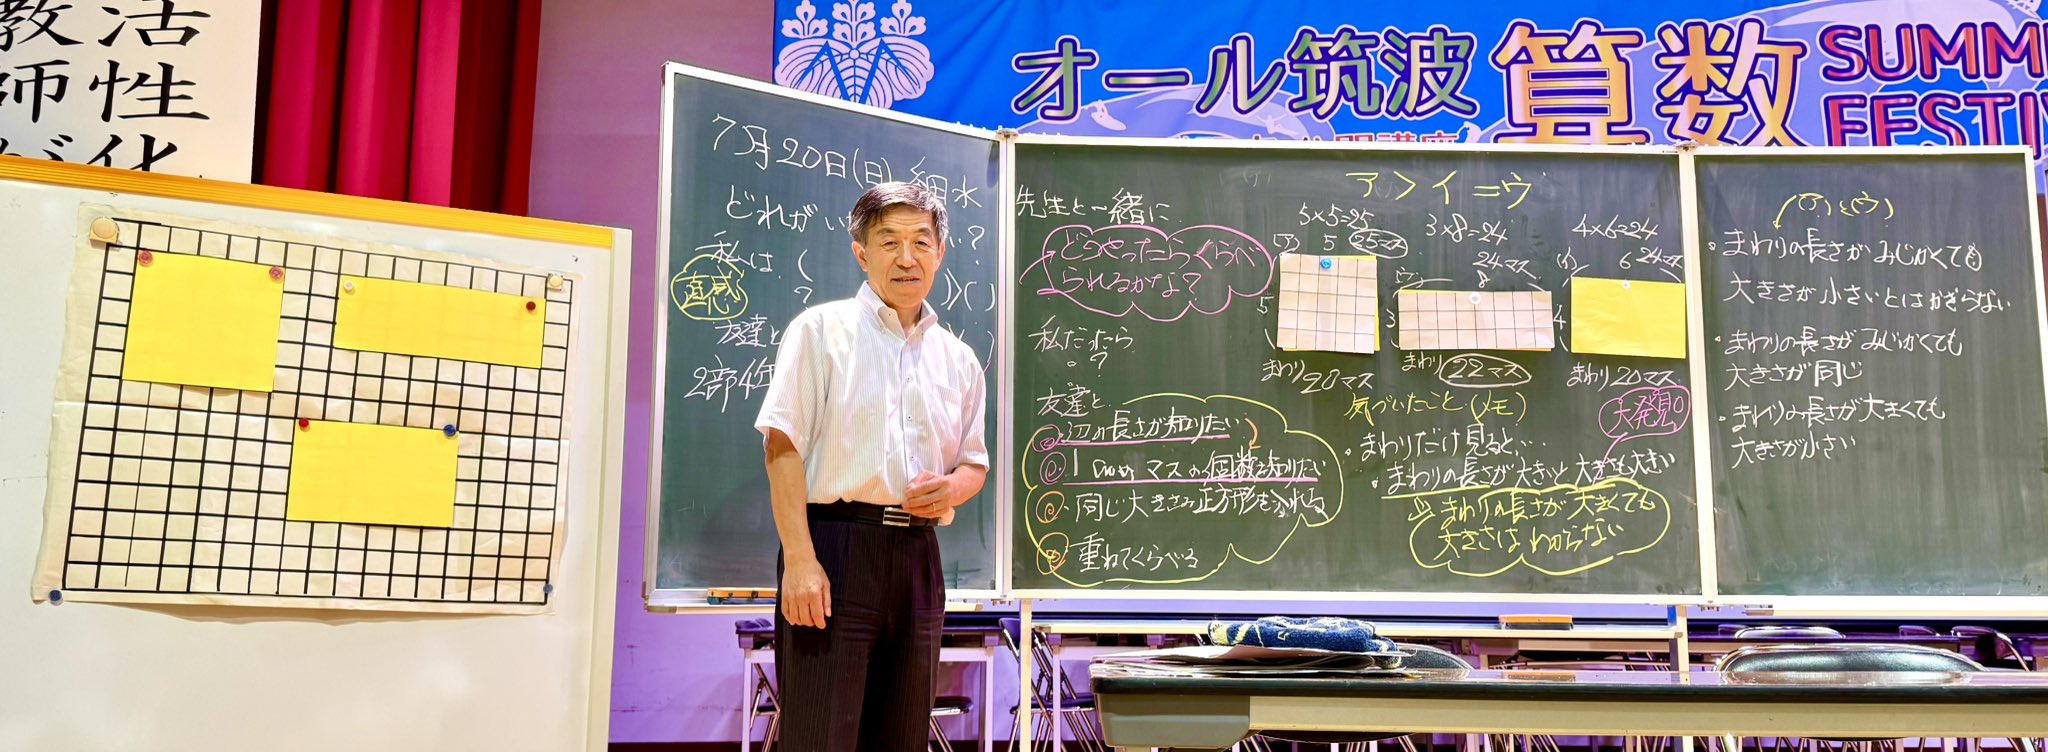 活性化
教師が
オール筑波 算数 SUMM
FESTIV
公開講座
7月20日(日) 細水
どれがい
い?
私は、(
?
)>( )
直感
友達と
2部4年
先生と一緒に
どうやったらくらべ
られるかな?
私だったら
?
友達と
辺の長さが知りたい
1cmのマスの個数を知りたい
同じ大きさの正方形を入れる
重ねてくらべる
ア>イ=ウ
5×5=25
(ア) 5 25マス
5
まわり20マス
3×8=24
24マス
(ウ) 8
3
まわり22マス
4×6=24
(イ) 6 24マス
4
まわり20マス
気づいたこと(メモ)
大発見
・まわりだけ見ると…
・まわりの長さが大きいと大きさも大きい
まわりの長さが大きくても
大きさはわからない
(ア)と(ウ)
・まわりの長さがみじかくても
大きさが小さいとはかぎらない
・まわりの長さがみじかくても
大きさが同じ
・まわりの長さが大きくても
大きさが小さい